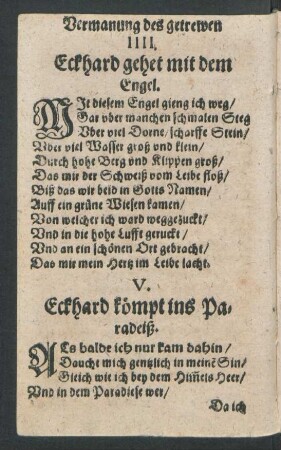 Vermanung des getrewen
IIII.
Eckhard gehet mit dem
Engel.
MIt diesem Engel gieng ich weg/
Gar vber manchen schmalen Steg
Vber viel Dorne/ scharffe Stein/
Vber viel Wasser groß vnd klein/
Durch hohe Berg vnd Klippen groß/
Das mir der Schweiß vom Leibe floß/
Biß das wir beid in Gotts Namen/
Auff ein grüne Wiesen kamen/
Von welcher ich ward weggezuckt/
Vnd in die hohe Lufft geruckt/
Vnd an ein schönen Ort gebracht/
Das mir mein Hertz im Leibe lacht.
V.
Eckhard kömpt ins Pa-
radeiß.
ALs balde ich nur kam dahin/
Daucht mich gentzlich in meinē Sin/
Gleich wie ich bey dem Him̄els Heer/
Vnd in dem Paradiese wer/
Da ich